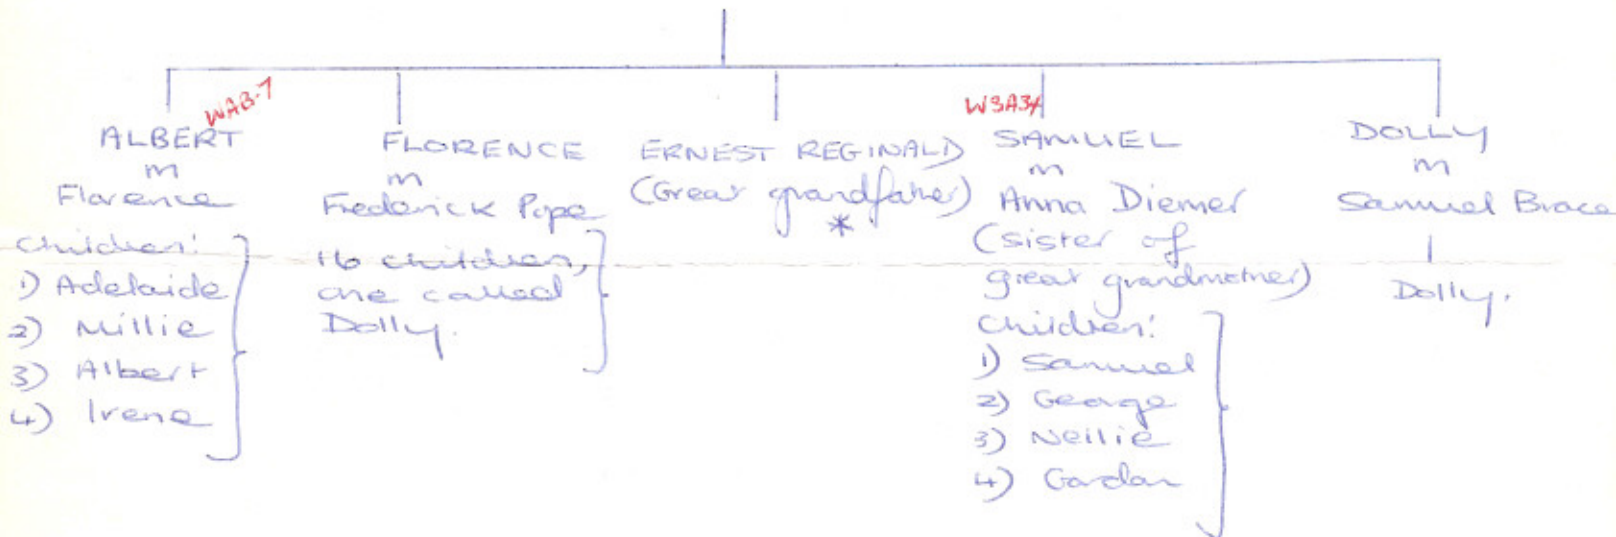 WAB-7
ALBERT
m
Florence
Children:
1) Adelaide
2) Millie
3) Albert
4) Irene
FLORENCE
m
Frederick Pope
16 children,
one called
Dolly.
ERNEST REGINALD
(Great grandfather)
*
W3A34
SAMUEL
m
Anna Diemer
(sister of
great grandmother)
Children:
1) Samuel
2) George
3) Nellie
4) Gordon
DOLLY
m
Samuel Brace
Dolly.